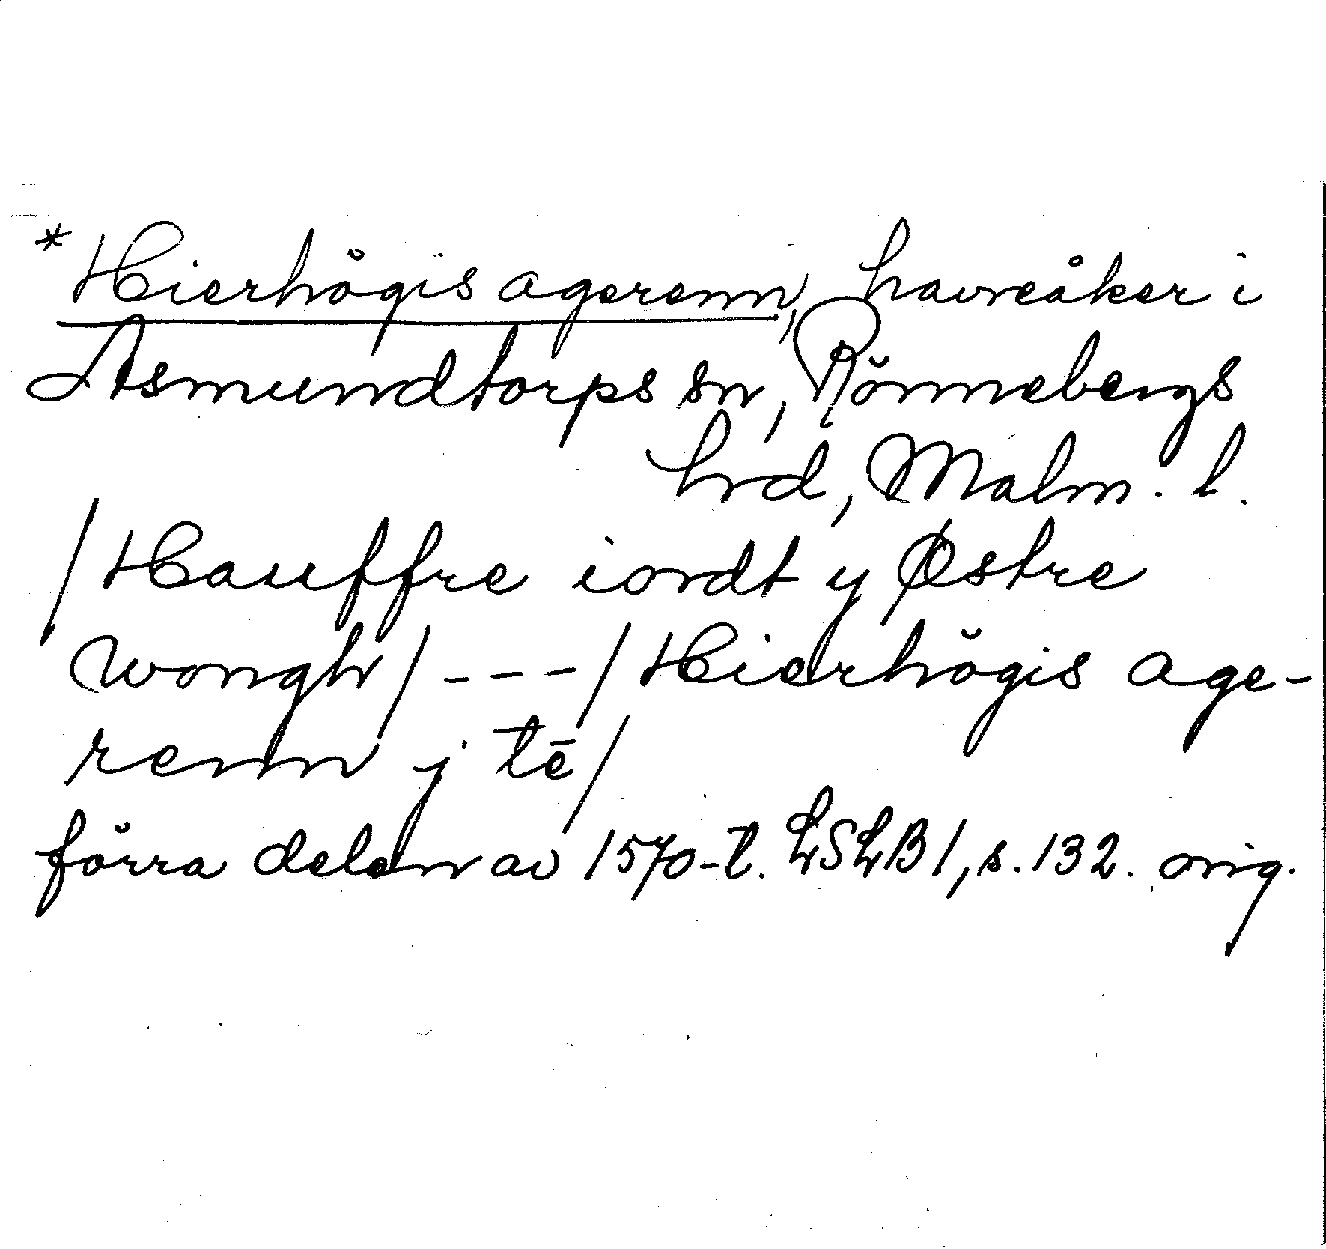 *Hierhögis agerenn, havreåker i
Asmundtorps sn, Rönnebergs
hrd, Malm. l.
/Hauffre iordt y Østre
wongh/---/Hierhögis age-
renn j tē/
förra delen av 1570-t. LSLB1, s. 132. orig.